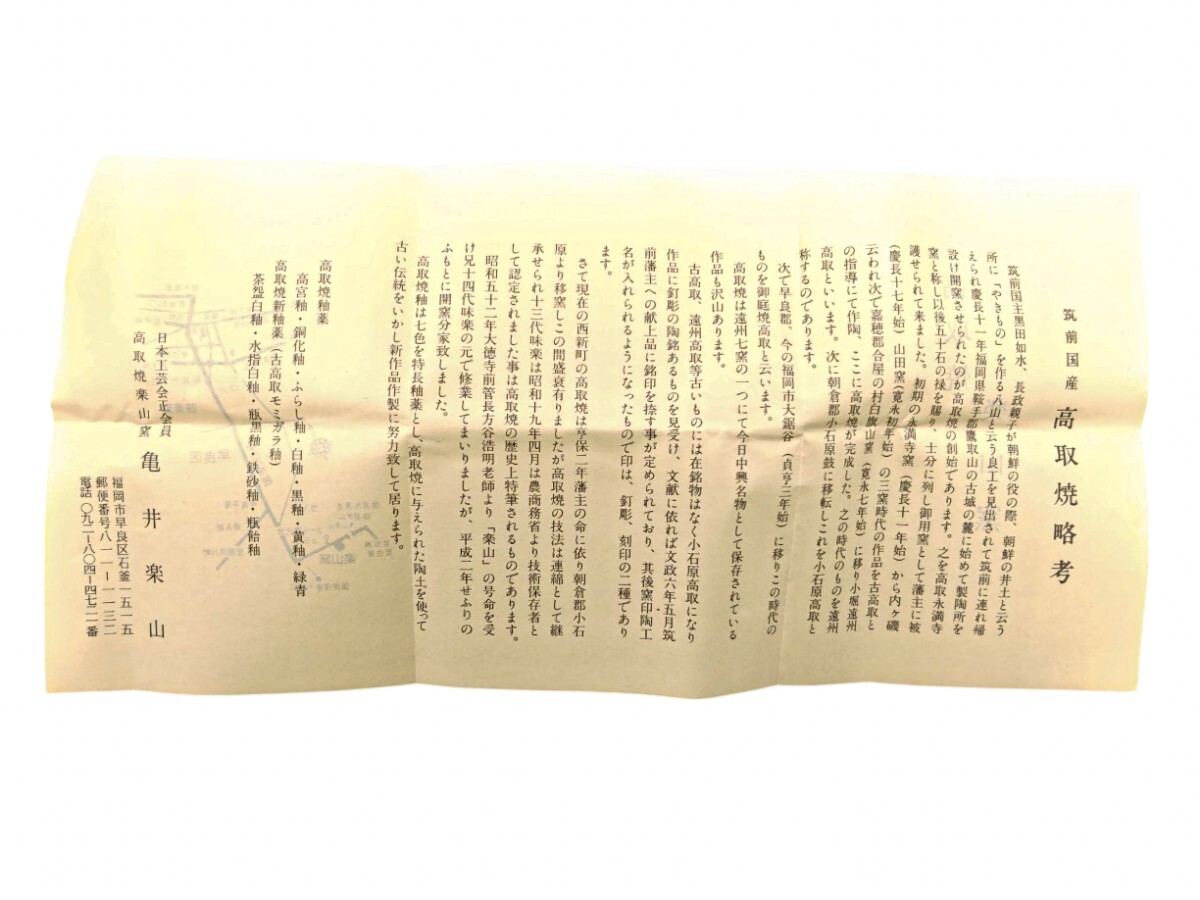 筑前国産 高取焼略考
筑前国主黒田如水、長政親子が朝鮮の役の際、朝鮮の井土と云う
所に「やきもの」を作る八山と云う良工を見出されて筑前に連れ帰
えられ慶長十一年福岡県鞍手郡鷹取山の古城の麓に始めて製陶所を
設け開窯させられたのが高取焼の創始であります。之を高取永満寺
窯と称し以後五十石の禄を賜り、士分に列し御用窯として藩主に被
護せられて来ました。初期の永満寺窯(慶長十一年始)から内ヶ磯
(慶長十七年始)山田窯(寛永初年始)の三窯時代の作品を古高取と
云われ次で嘉穂郡合屋の村白旗山窯(寛永七年始)に移り小堀遠州
の指導にて作陶、ここに高取焼が完成した。之の時代のものを遠州
高取といいます。次に朝倉郡小石原鼓に移転しこれを小石原高取と
称するのであります。
次で早良郡、今の福岡市大鋸谷(貞亨三年始)に移りこの時代の
ものを御庭焼高取と云います。
高取焼は遠州七窯の一つにて今日中興名物として保存されている
作品も沢山あります。
古高取、遠州高取等古いものには在銘物はなく小石原高取になり
作品に釘彫の陶銘あるものを見受け、文献に依れば文政六年五月筑
前藩主への献上品に銘印を捺す事が定められており、其後窯印陶工
名が入れられるようになったもので印は、釘彫、刻印の二種であり
ます。
さて現在の西新町の高取焼は亨保二年藩主の命に依り朝倉郡小石
原より移窯しこの間盛衰有りましたが高取焼の技法は連綿として継
承せられ十三代味楽は昭和十九年四月は農商務省より技術保存者と
して認定されました事は高取焼の歴史上特筆されるものであります。
昭和五十二年大徳寺前管長方谷浩明老師より「楽山」の号命を受
け兄十四代味楽の元で修業してまいりましたが、平成二年せふりの
ふもとに開窯分家致しました。
高取焼釉は七色を特長釉薬とし、高取焼に与えられた陶土を使って
古い伝統をいかし新作品作製に努力致して居ります。
高取焼釉薬
高宮釉・銅化釉・ふらし釉・白釉・黒釉・黄釉・緑青
高取焼新釉薬(古高取モミガラ釉)
茶盌白釉・水指白釉・瓶黒釉・鉄砂釉・瓶飴釉
日本工芸会正会員
高取焼楽山窯 亀井楽山
福岡市早良区石釜一五一五
郵便番号八一一ー一一三二
電話〇九二ー八〇四ー四七二一番